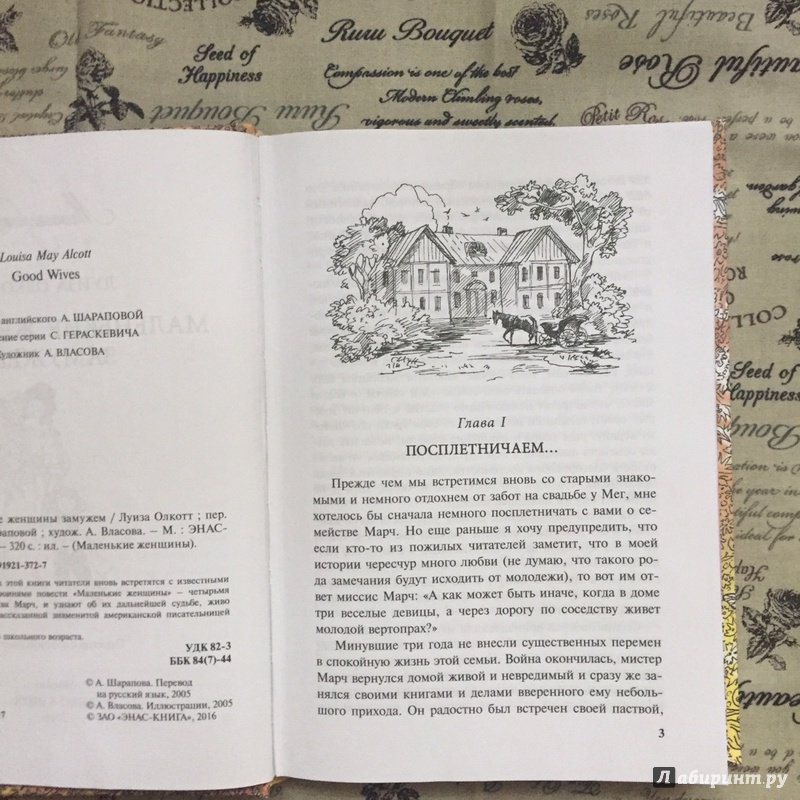 COLLECTION
Seed of
Happiness
Ruru Bouquet
Compassion is one of the best
Modern Climbing roses,
vigorous and sweetly scented.
Ruru Bouquet
Petit
Beautiful
Roses
Beautiful Rose
Seed of
Happiness
Beauty
Louisa May Alcott
Good Wives
английского А. ШАРАПОВОЙ
серии С. ГЕРАСКЕВИЧА
Художник А. ВЛАСОВА
женщины замужем / Луиза Олкотт ; пер.
; худож. А. Власова. – М. : ЭНАС-
– 320 с. : ил. – (Маленькие женщины).
91921-372-7
этой книги читатели вновь встретятся с известными
повести «Маленькие женщины» – четырьмя
Марч, и узнают об их дальнейшей судьбе, живо
рассказанной знаменитой американской писательницей
школьного возраста.
УДК 82-3
ББК 84(7)-44
© А. Шарапова. Перевод
на русский язык, 2005
© А. Власова. Иллюстрации, 2005
© ЗАО «ЭНАС-КНИГА», 2016
Глава I
ПОСПЛЕТНИЧАЕМ...
Прежде чем мы встретимся вновь со старыми знако-
мыми и немного отдохнем от забот на свадьбе у Мег, мне
хотелось бы сначала немного посплетничать с вами о се-
мействе Марч. Но еще раньше я хочу предупредить, что
если кто-то из пожилых читателей заметит, что в моей
истории чересчур много любви (не думаю, что такого ро-
да замечания будут исходить от молодежи), то вот им от-
вет миссис Марч: «А как может быть иначе, когда в доме
три веселые девицы, а через дорогу по соседству живет
молодой вертопрах?»
Минувшие три года не внесли существенных перемен
в спокойную жизнь этой семьи. Война окончилась, мистер
Марч вернулся домой живой и невредимый и сразу же за-
нялся своими книгами и делами вверенного ему неболь-
шого прихода. Он радостно был встречен своей паствой,
3
Лабиринт.ру